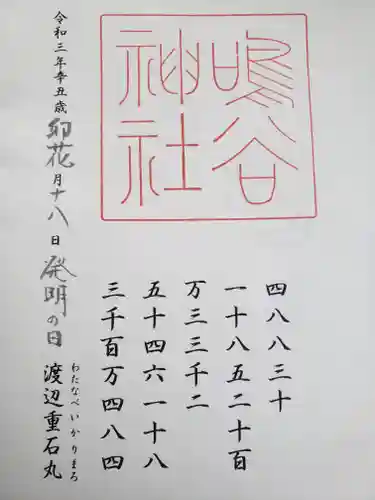 鳴谷
神社
四八八三十
一十八五二十百
万三三千二
五十四六一十八
三千百万四八四
令和三年辛丑歳卯花月十八日発明の日渡辺重石丸
わたなべいかりまろ